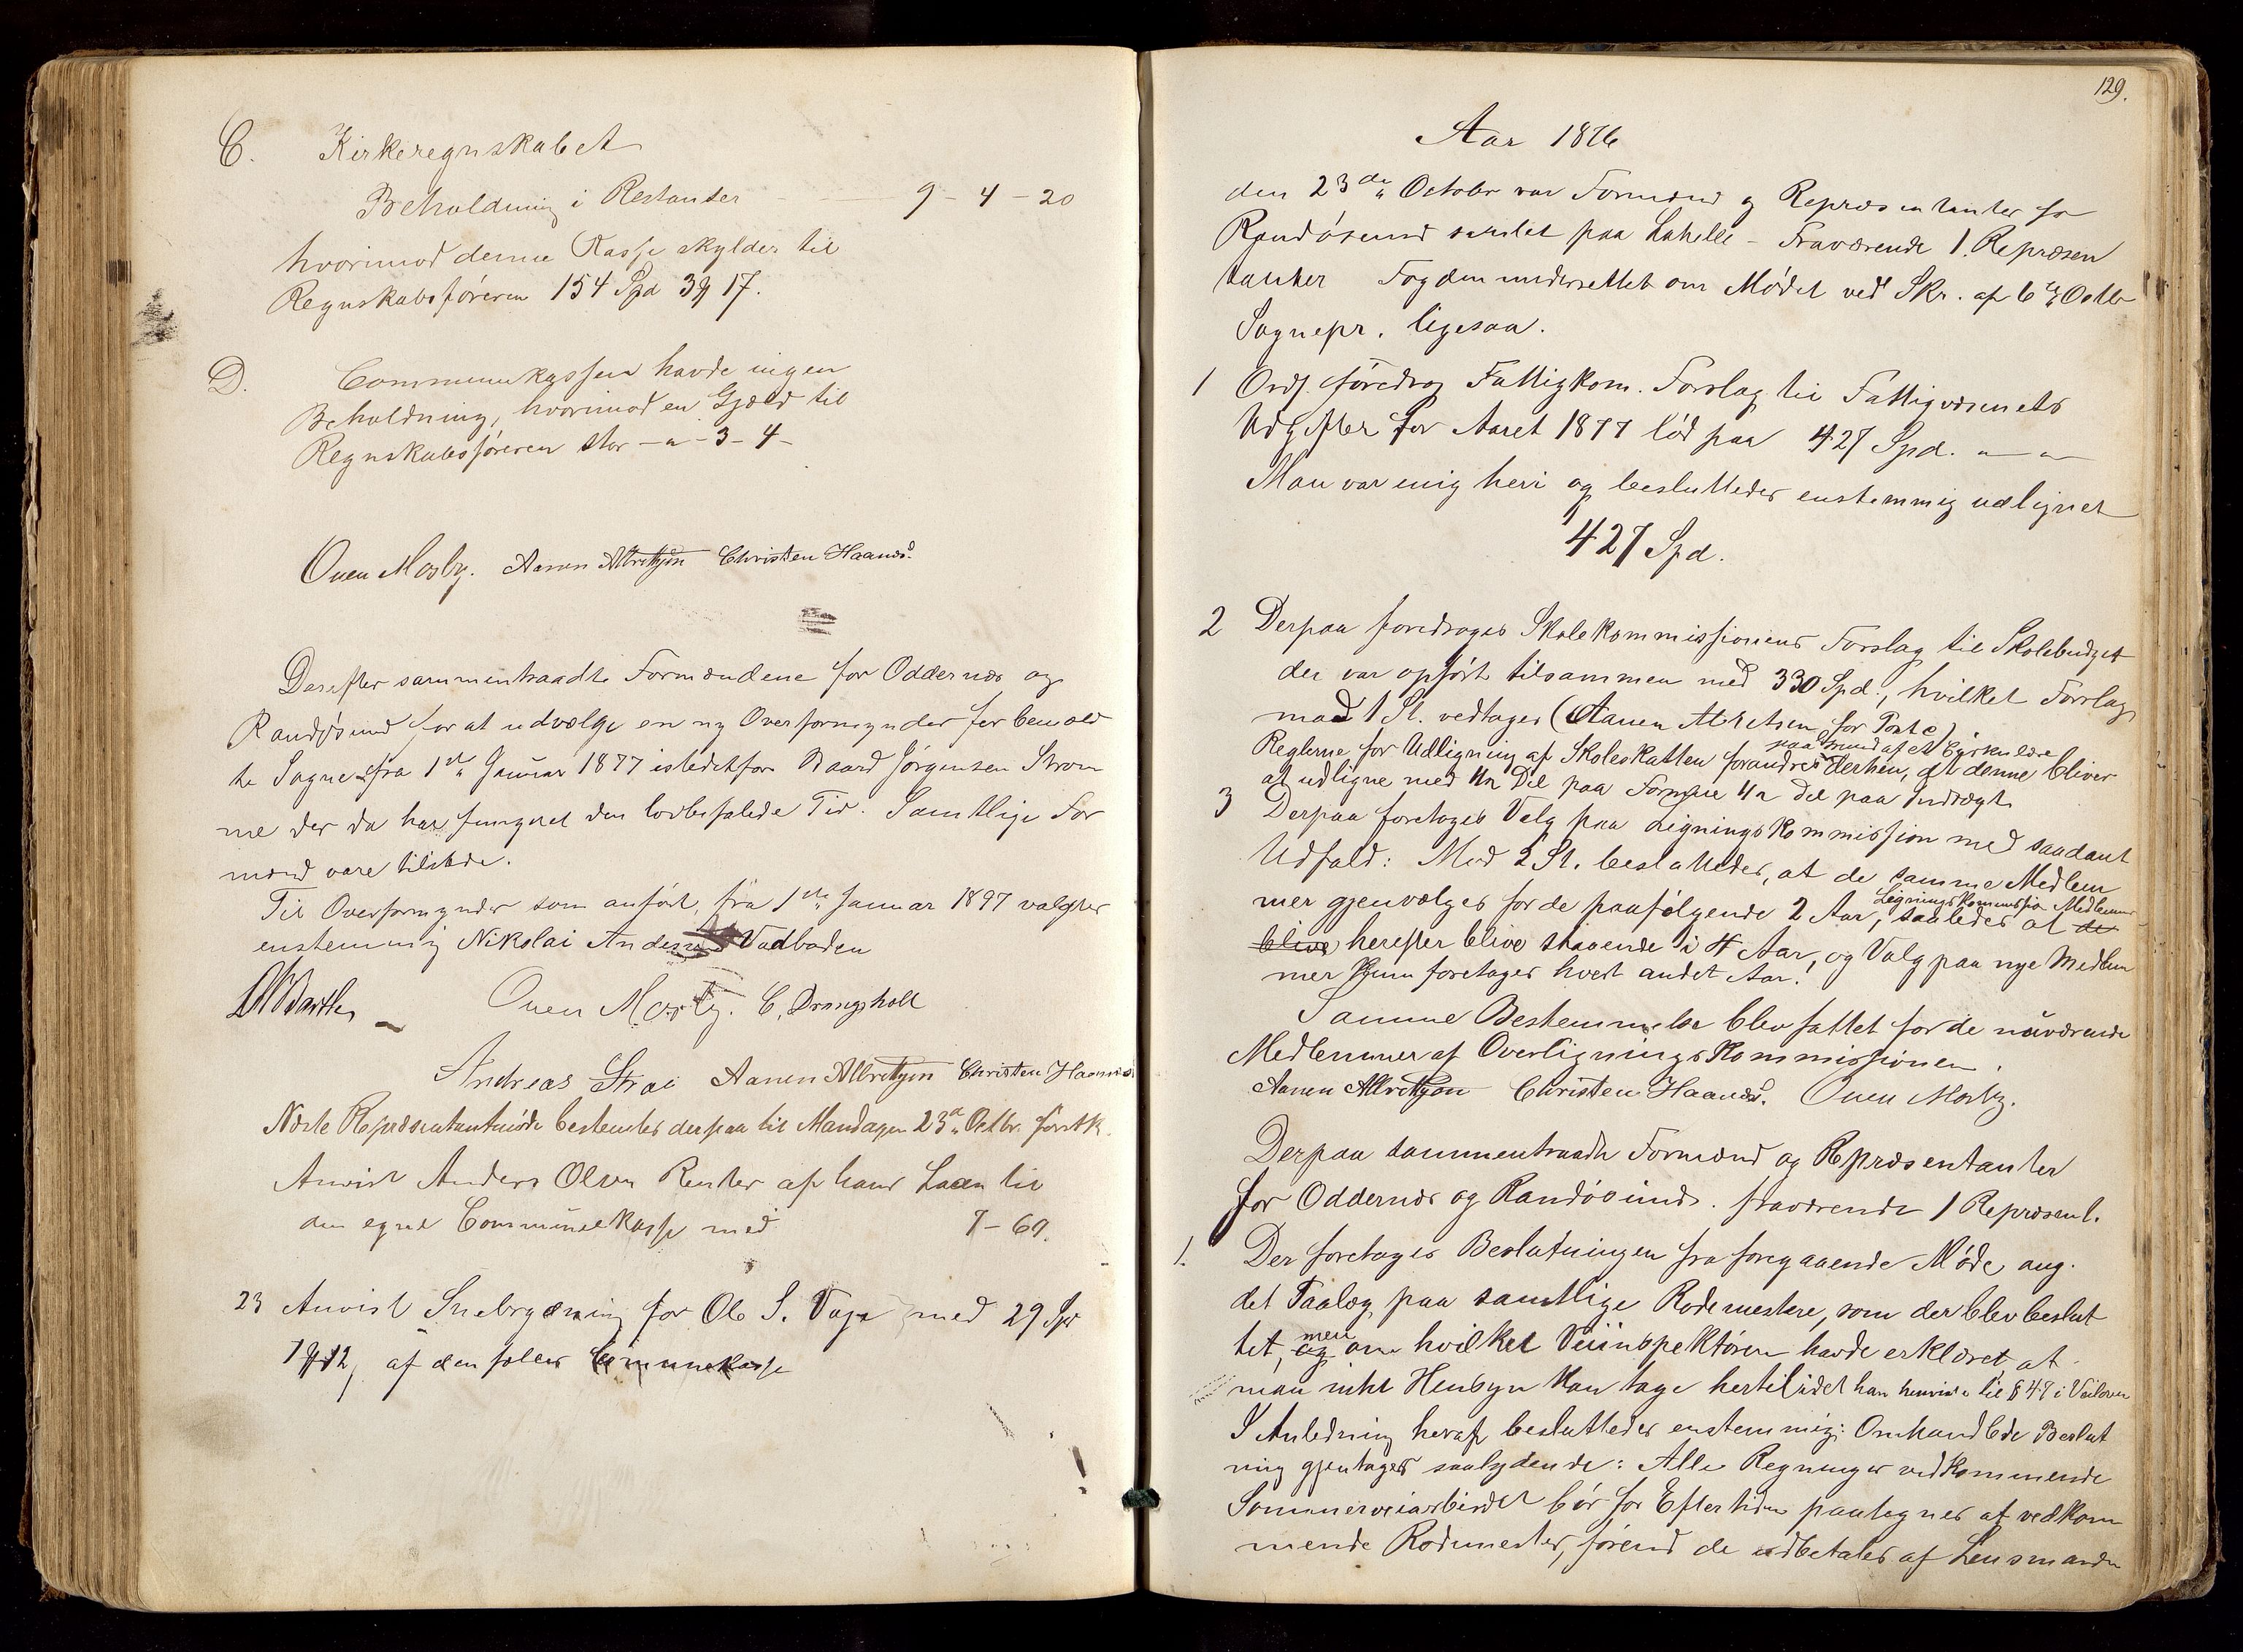 C. Kirkeregnskabet
Beholdning i Restantser - - 9 - 4 - 20
hvorimod denne Kasse skylder til
Regnskabsføreren 154 Spd 3 17.
D. Communekassen havde ingen
Beholdning, hvorimod en Gjæld til
Regnskabsføreren stor - " - 3 - 4 -
Ouen Mosby. Aanen Albretsen Christen Haanæs.
Derefter sammentraadte Formændene for Oddernæs og
Randøsund for at udvælge en ny Overformynder for bemeld
te Sogne fra 1ste Januar 1877 istedetfor Baard Jørgensen Strøm
me der da har fungeret den lovbefalede Tid. Samtlige For
mænd vare tilstede.
Til Overformynder som anført, fra 1ste Januar 1897 valgtes
enstemmig Nikolai Andersen Vadboden
Ouen Mosby. C. Drangsholt
Andreas Strai Aanen Albretsen Christen Haanæs
Næste Repræsentantmøde bestemtes derpaa til Mandagen 23de Octbr. førstk.
Anvist Anders Olsen Renter af hans Laan til
den egne Communekasse med 7 - 69.
23 Anvist Snebrydning for Ole S. Vage med 29 Spd
12, af den fælles Communekasse
129.
Aar 1876
den 23de October var Formænd og Repræsentanter for
Randøsund samlet paa Lahelle - Fraværende 1. Repræsen
tanter Fogden underrettet om Mødet ved Skr. af 6te Octbr
Sognepr. ligesaa.
1 Ordf. foredrog Fattigkom. Forslag til Fattigvæsenets
Udgifter for Aaret 1877 lød paa 427 Spd. " - "
Man var enig heri og besluttedes enstemmig udlignet
427 Spd.
2 Derpaa foredroges Skolekommissionens Forslag til Skolebudget
der var opført tilsammen med 330 Spd., hvilket Forslag
mod 1 St. vedtoges (Aanen Albretsen for Porto)
paa Grund af et Cirkulære
Reglerne for Udligning af Skoleskatten forandres derhen, at denne bliver
at udligne med 1/2 Del paa Formue 1/2 Del paa Indtægt
3 Derpaa foretoges Valg paa Ligningskommission med saadant
Udfald: Mod 2 St. besluttedes, at de samme Medlem
mer gjenvælges for de paafølgende 2 Aar, saaledes at de Ligningskommission Medlemmer
blive herefter blive staaende i 4 Aar, og Valg paa nye Medlem
mer kun foretages hvert andet Aar!
Samme Bestemmelse blev fattet for de nuværende
Medlemmer af Overligningskommissionen.
Aanen Albretson Christen Haanæs. Ouen Mosby.
Derpaa sammentraadte Formænd og Repræsentanter
for Oddernæs og Randøsund. fraværende 1 Repræsent.
1. Der foretoges Beslutningen fra foregaaende Møde ang.
det Paalæg paa samtlige Rodemestere, som der blev beslut
tet, og men om hvilket Veiinspektøren havde erklæret, at
man intet Hensyn kan tage hertil idet han henviste til § 47 i Veiloven
I Anledning heraf besluttedes enstemmig: Omhandlede Beslut
ning gjentages saalydende: Alle Regninger vedkommende
Sommerveiarbeidet bør for Eftertiden paategnes af vedkom
mende Rodemester, førend de udbetales af Lensmanden